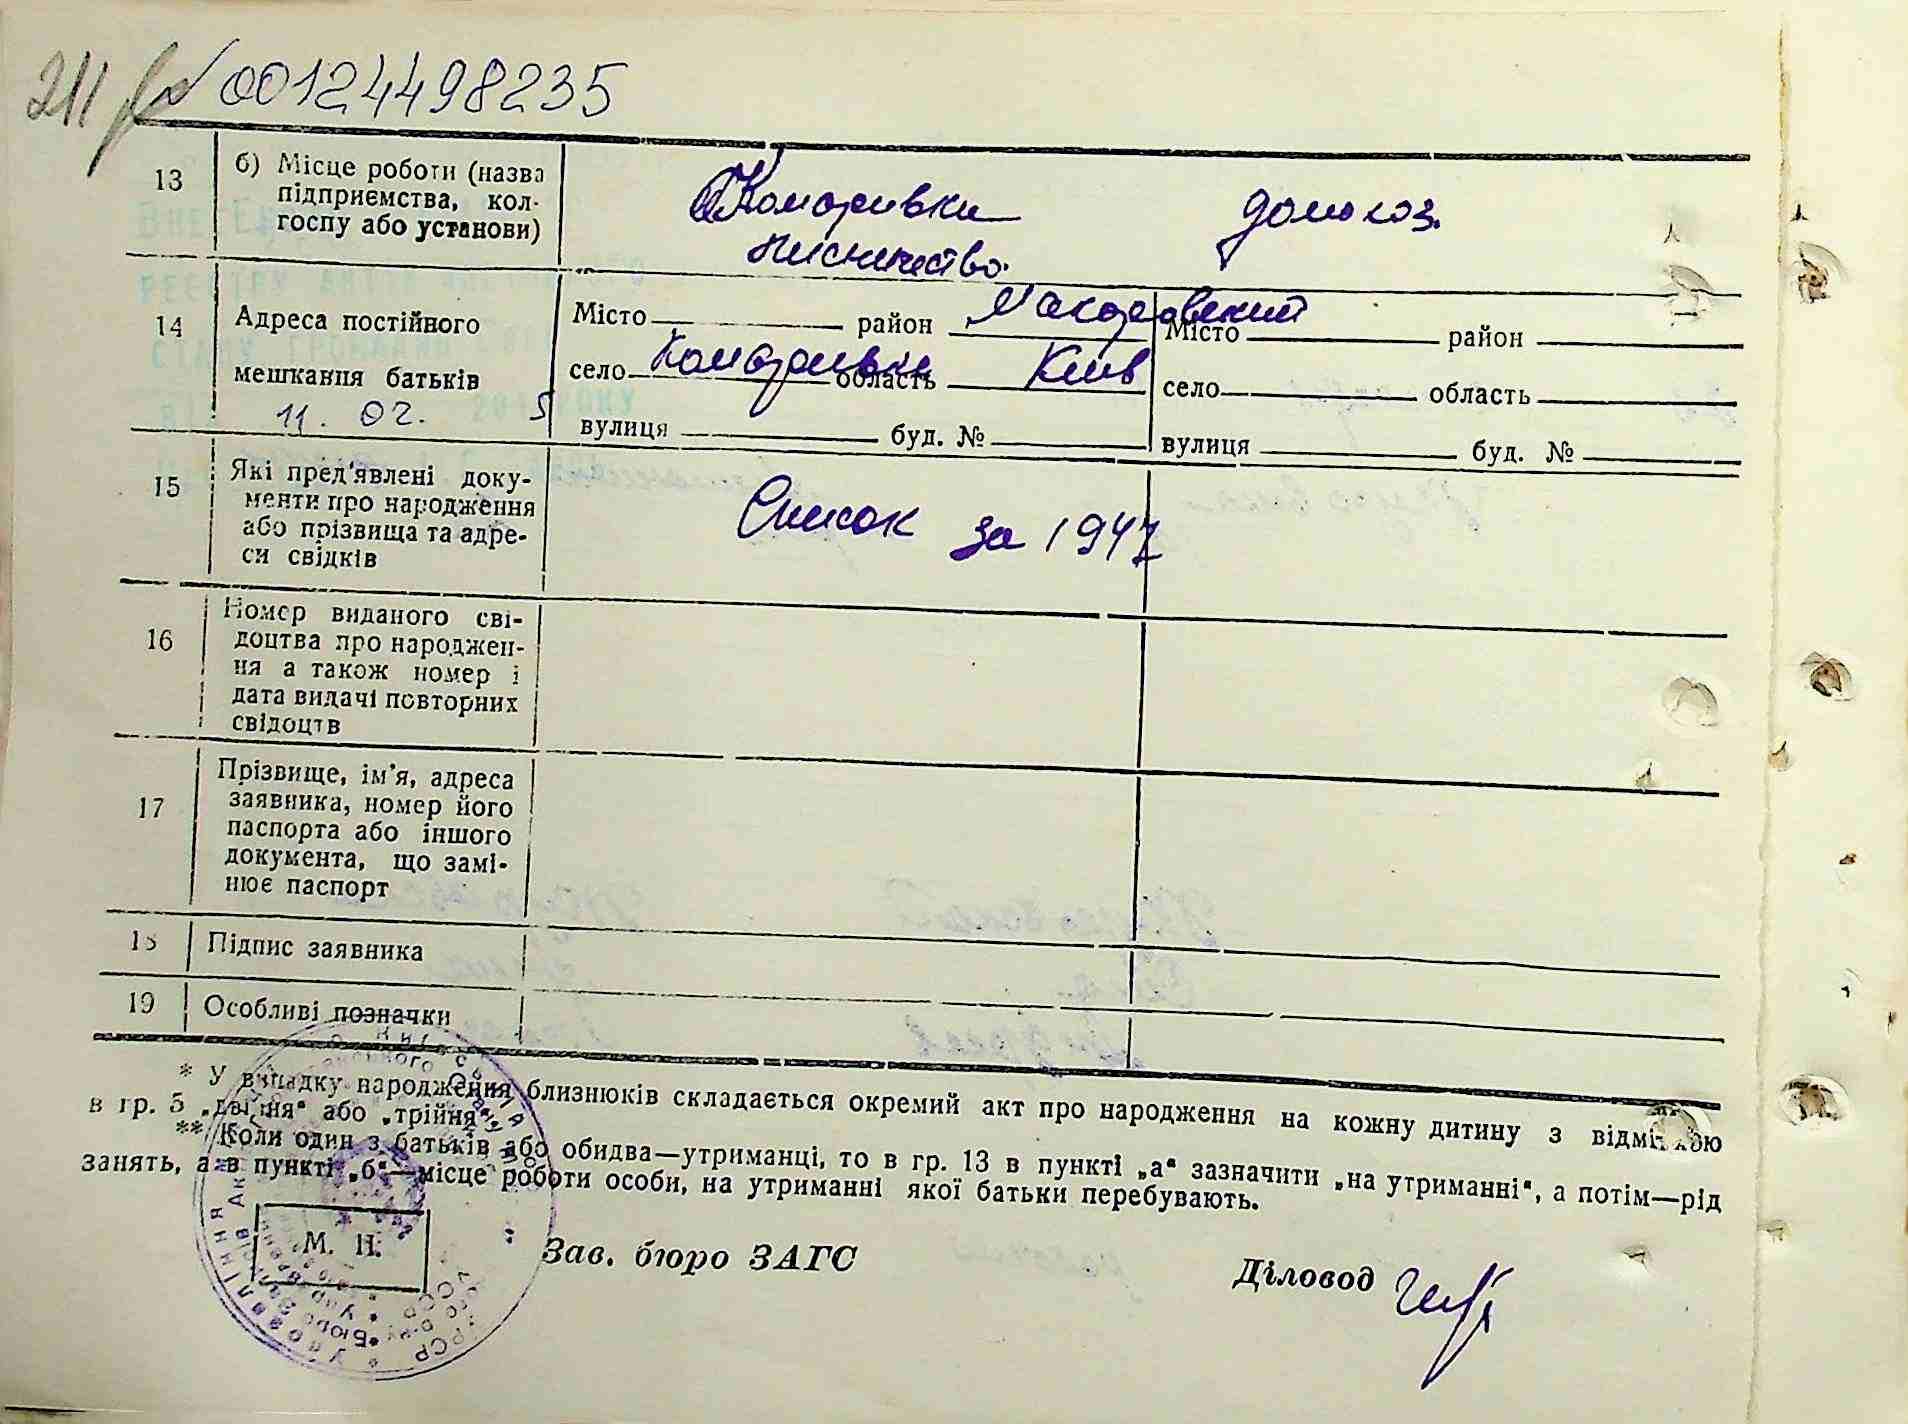 211 00124498235
13 б) Місце роботи (назва
підприємства, кол-
госпу або установи)
Комарівки домогоз.
лисничество.
14 Адреса постійного
мешкання батьків
11. 02. 2015 РОКУ
Місто район Макаровский
село Комарівки область Киів
вулиця буд. №
Місто район
село область
вулиця буд. №
15 Які пред'явлені доку-
менти про народження
або прізвища та адре-
си свідків
Список за 1947
16 Номер виданого сві-
доцтва про народжен-
ня а також номер і
дата видачі повторних
свідоцтв
17 Прізвище, ім'я, адреса
заявника, номер його
паспорта або іншого
документа, що замі-
нює паспорт
18 Підпис заявника
19 Особливі позначки
* У випадку народження близнюків складається окремий акт про народження на кожну дитину з відміткою
в гр. 5 „двійня" або „трійня".
** Коли один з батьків або обидва—утриманці, то в гр. 13 в пункті „а" зазначити „на утриманні", а потім—рід
занять, а в пункті „б"—місце роботи особи, на утриманні якої батьки перебувають.
М. П.
Зав. бюро ЗАГС
Діловод